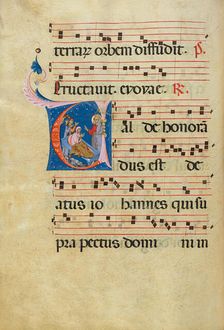 terrar orbem diffudit. P.
Eructavit. evovae. R.
Val de honorã
dus est be
atus io hannes qui su
pra pectus domi ni in